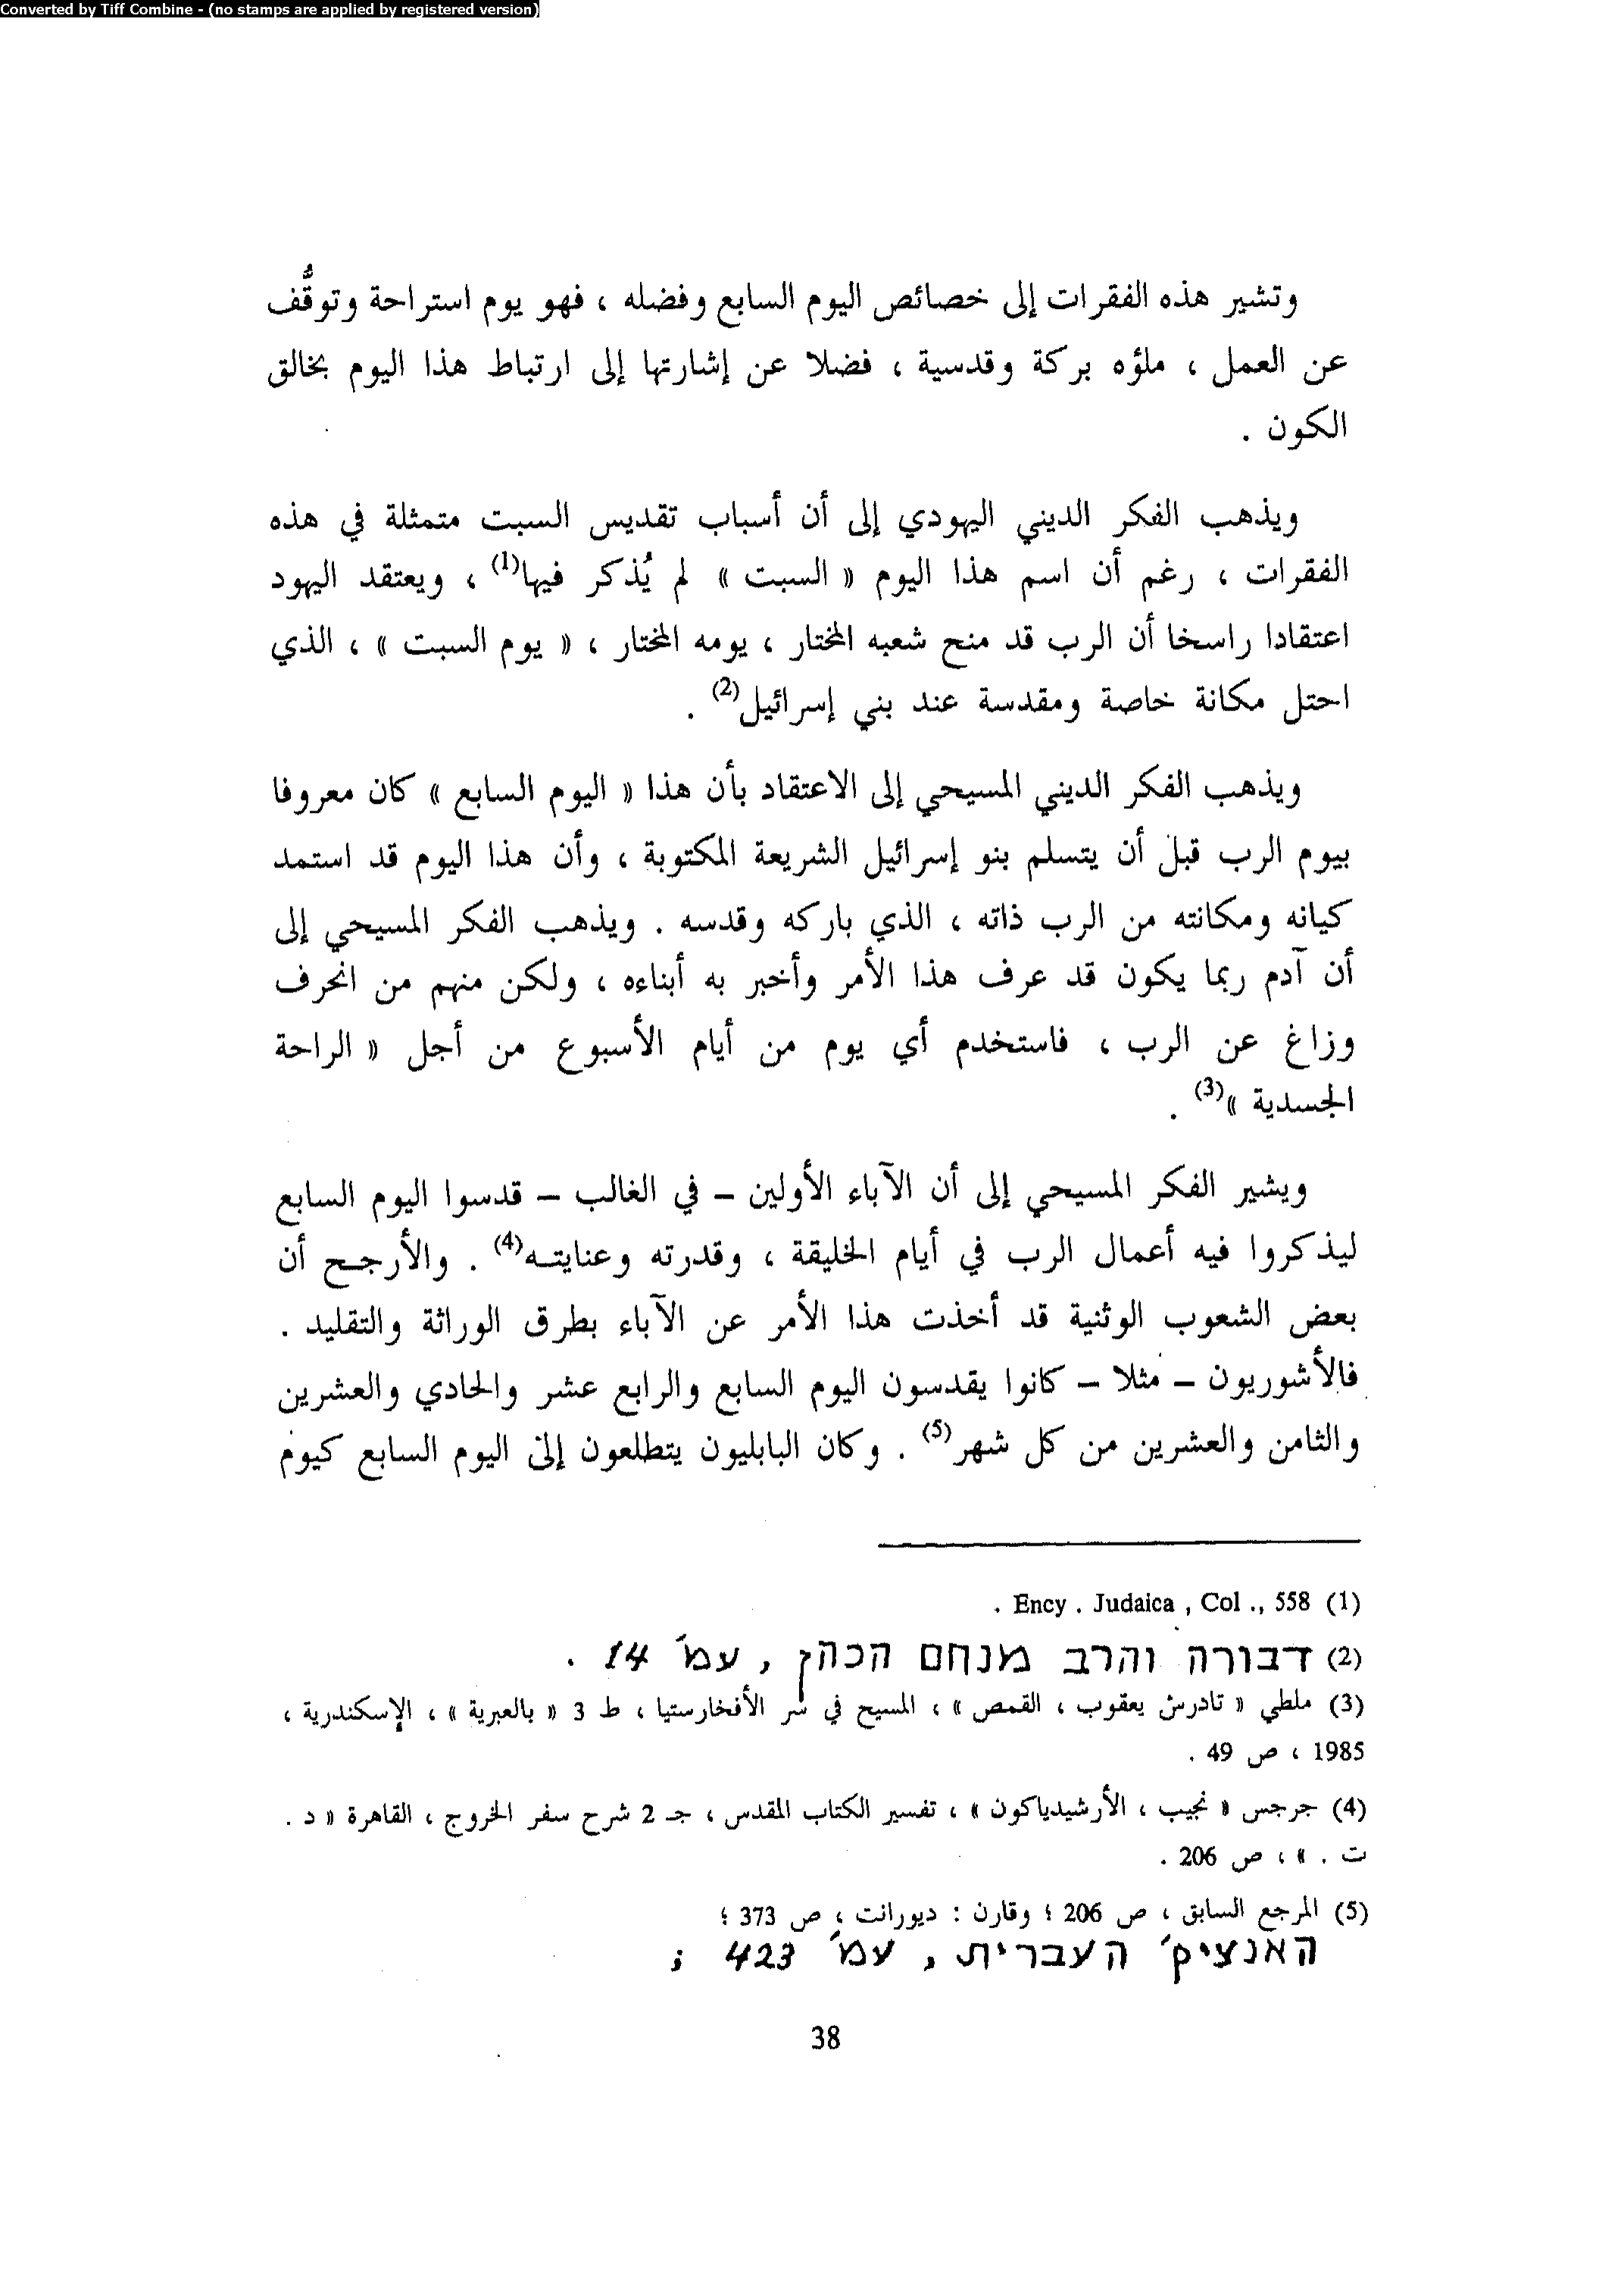 Converted by Tiff Combine - (no stamps are applied by registered version)
وتشير هذه الفقرات إلى خصائص اليوم السابع وفضله ، فهو يوم استراحة وتوقُّف
عن العمل ، ملؤه بركة وقدسية ، فضلا عن إشارتها إلى ارتباط هذا اليوم بخالق
الكون .
ويذهب الفكر الديني اليهودي إلى أن أسباب تقديس السبت متمثلة في هذه
الفقرات ، رغم أن اسم هذا اليوم « السبت » لم يُذكر فيها(1) ، ويعتقد اليهود
اعتقادا راسخا أن الرب قد منح شعبه المختار ، يومه المختار ، « يوم السبت » ، الذي
احتل مكانة خاصة ومقدسة عند بني إسرائيل(2) .
ويذهب الفكر الديني المسيحي إلى الاعتقاد بأن هذا « اليوم السابع » كان معروفا
بيوم الرب قبل أن يتسلم بنو إسرائيل الشريعة المكتوبة ، وأن هذا اليوم قد استمد
كيانه ومكانته من الرب ذاته ، الذي باركه وقدسه . ويذهب الفكر المسيحي إلى
أن آدم ربما يكون قد عرف هذا الأمر وأخبر به أبناءه ، ولكن منهم من انحرف
وزاغ عن الرب ، فاستخدم أي يوم من أيام الأسبوع من أجل « الراحة
الجسدية »(3) .
ويشير الفكر المسيحي إلى أن الآباء الأولين – في الغالب – قدسوا اليوم السابع
ليذكروا فيه أعمال الرب في أيام الخليقة ، وقدرته وعنايته(4) . والأرجح أن
بعض الشعوب الوثنية قد أخذت هذا الأمر عن الآباء بطرق الوراثة والتقليد .
فالأشوريون – مثلا – كانوا يقدسون اليوم السابع والرابع عشر والحادي والعشرين
والثامن والعشرين من كل شهر(5) . وكان البابليون يتطلعون إلى اليوم السابع كيوم
(1) Ency . Judaica , Col ., 558 .
(2) דבורה והרב מנחם הכהן , עמ׳ 14 .
(3) ملطي « تادرس يعقوب ، القمص » ، المسيح في سر الأفخارستيا ، ط 3 « بالعبرية » ، الإسكندرية ،
1985 ، ص 49 .
(4) جرجس « نجيب ، الأرشيدياكون » ، تفسير الكتاب المقدس ، جـ 2 شرح سفر الخروج ، القاهرة « د .
ت . » ، ص 206 .
(5) المرجع السابق ، ص 206 ؛ وقارن : ديورانت ، ص 373 ؛
האנציק׳ העברית , עמ׳ 423 ;
38